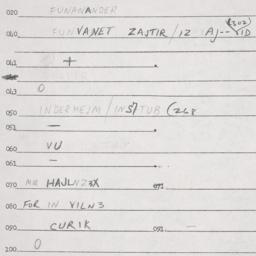 020 FUNANANDER
040 FUNVANET ZAJTIR/IZ AJ-- YID (302)
041 +
043 O
050 INDERHEJM/INSTUB (268
051 —
060 VU
061 —
070 MR HAJLNZ3X 071
080 FOR IN VILN3
090 CURIK 091 —
100 O